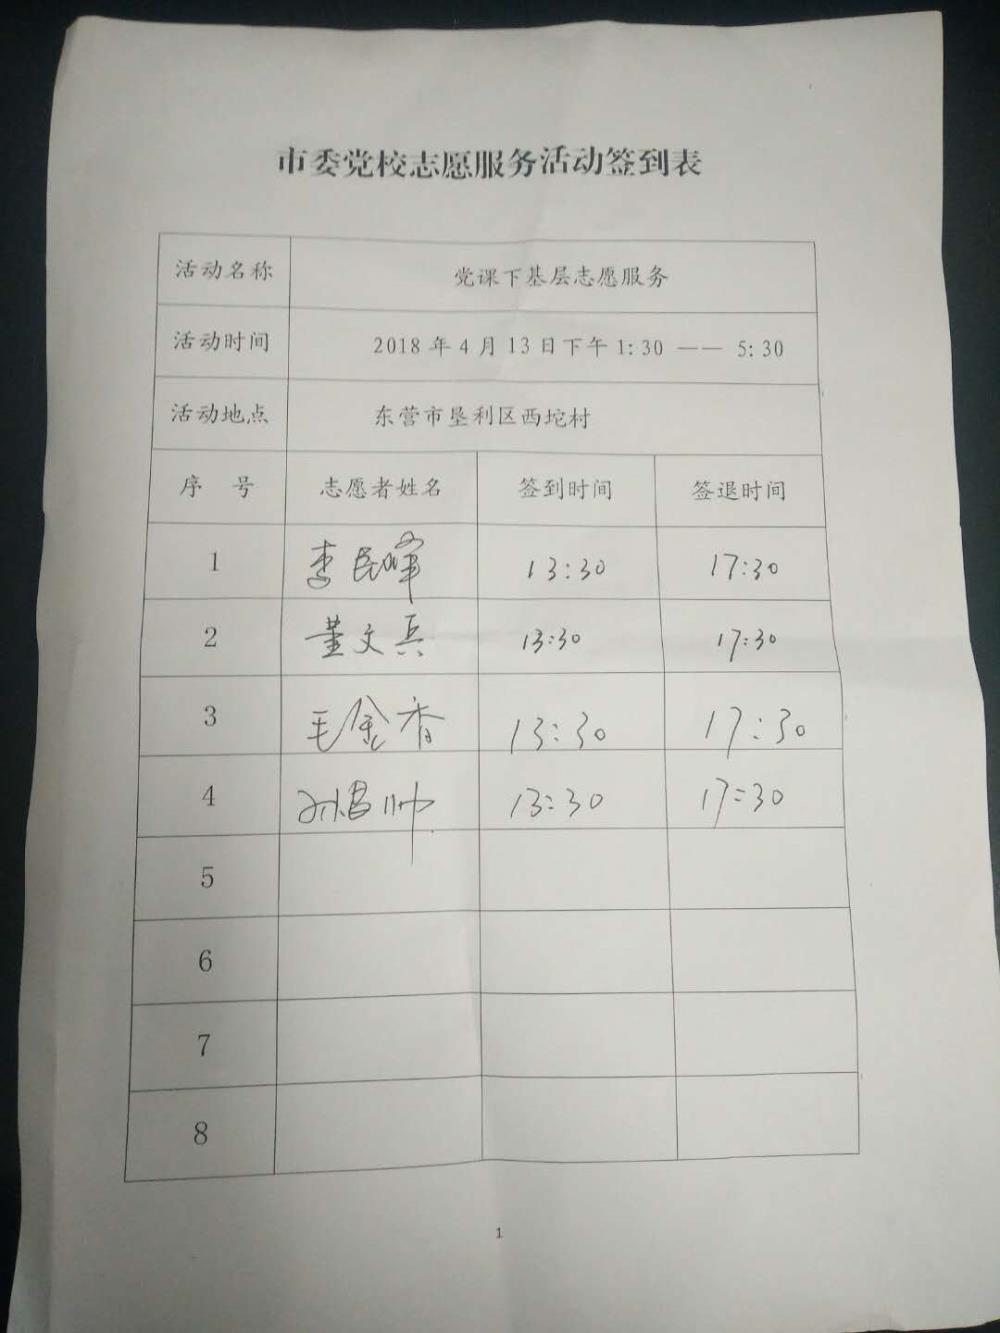 市委党校志愿服务活动签到表
活动名称 党课下基层志愿服务
活动时间 2018年4月13日下午1:30 —— 5:30
活动地点 东营市垦利区西坨村
序 号 志愿者姓名 签到时间 签退时间
1 李民峰 13:30 17:30
2 董文兵 13:30 17:30
3 毛金香 13:30 17:30
4 13:30 17:30
5
6
7
8
1